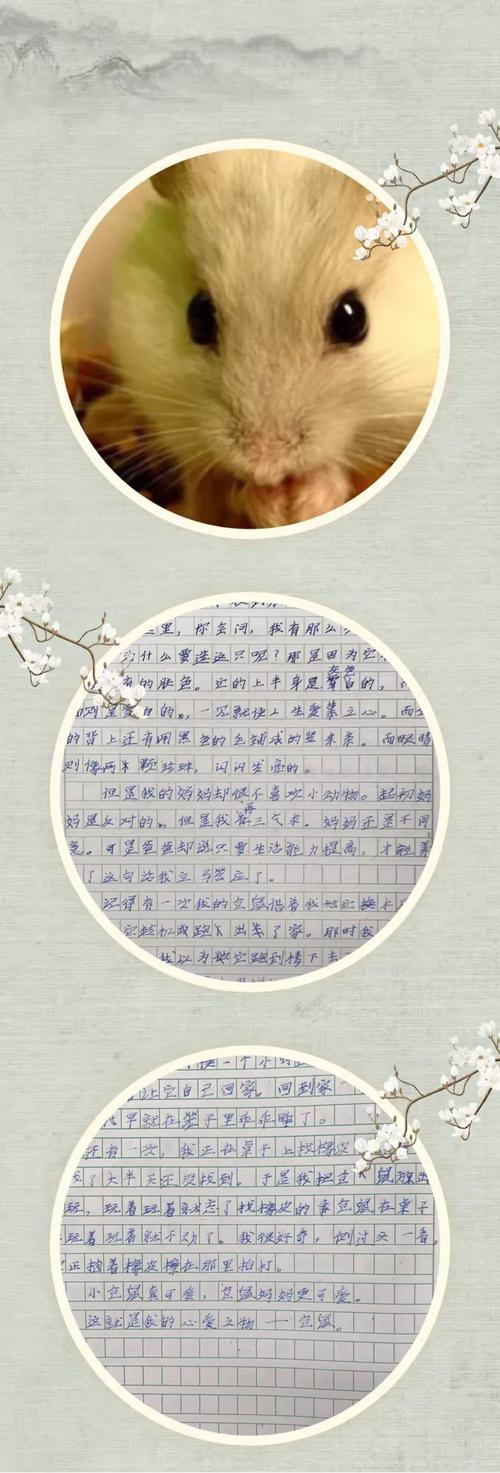 里，你会问，我有那么
什么要选这只呢？那是因为它
有的肤色。它的上半身是白的，
则是白的，一见就使人生爱慕之心。而
的背上还有用黑色的毛铺成的竖条条。而眼睛
则像两颗珍珠，闪闪发亮的。
但是我的妈妈却很不喜欢小动物。起初妈
妈是反对的，但是我再三气求。妈妈还是不同
意。可是爸爸却说只要生活能力提高，才能养
了这句话我立马答应了。
记得有一次我的仓鼠借着我给它换水
它趁机跑出去了家。那时我
我以为它跑到楼下去
一个小时
让它自己回家。回到家
早就在笼子里乖乖睡了。
还有一次，我正在桌子上找橡皮
了大半天还没找到。于是我把仓鼠放出
玩，玩着玩着就忘了找橡皮的事仓鼠在桌子
玩着玩着就不动了。我很好奇，侧过头一看，
正抱着橡皮擦在那里拍打。
小仓鼠真可爱，仓鼠妈妈更可爱。
这就是我的心爱之物一仓鼠。